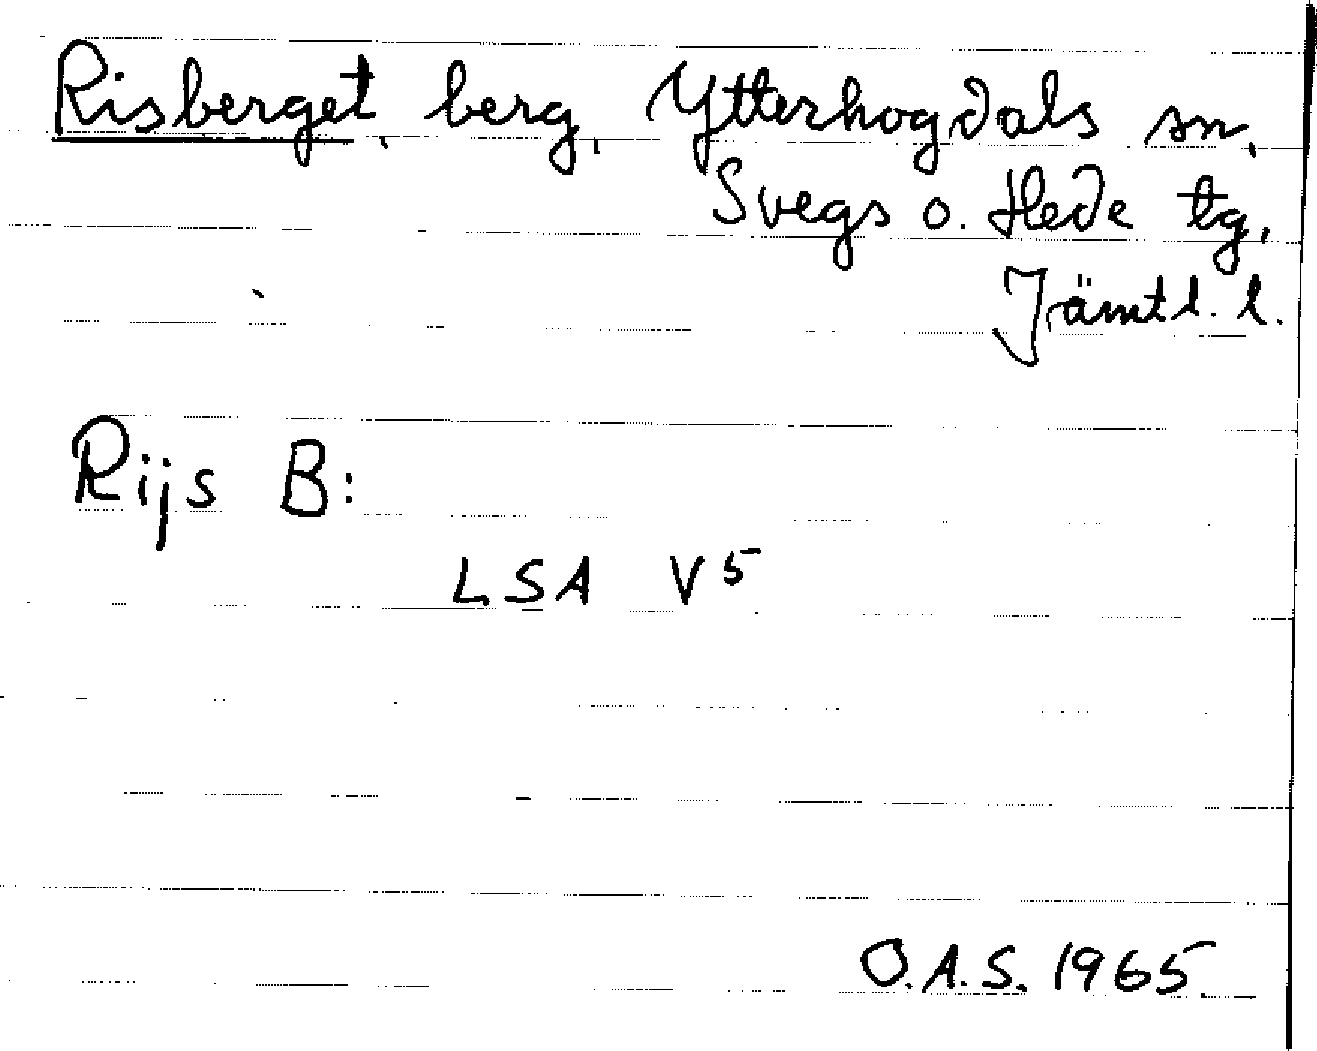 Risberget, berg, Ytterhogdals sn,
Svegs o. Hede tg,
Jämtl. l.
Rijs B:
LSA V5
O.A.S. 1965.